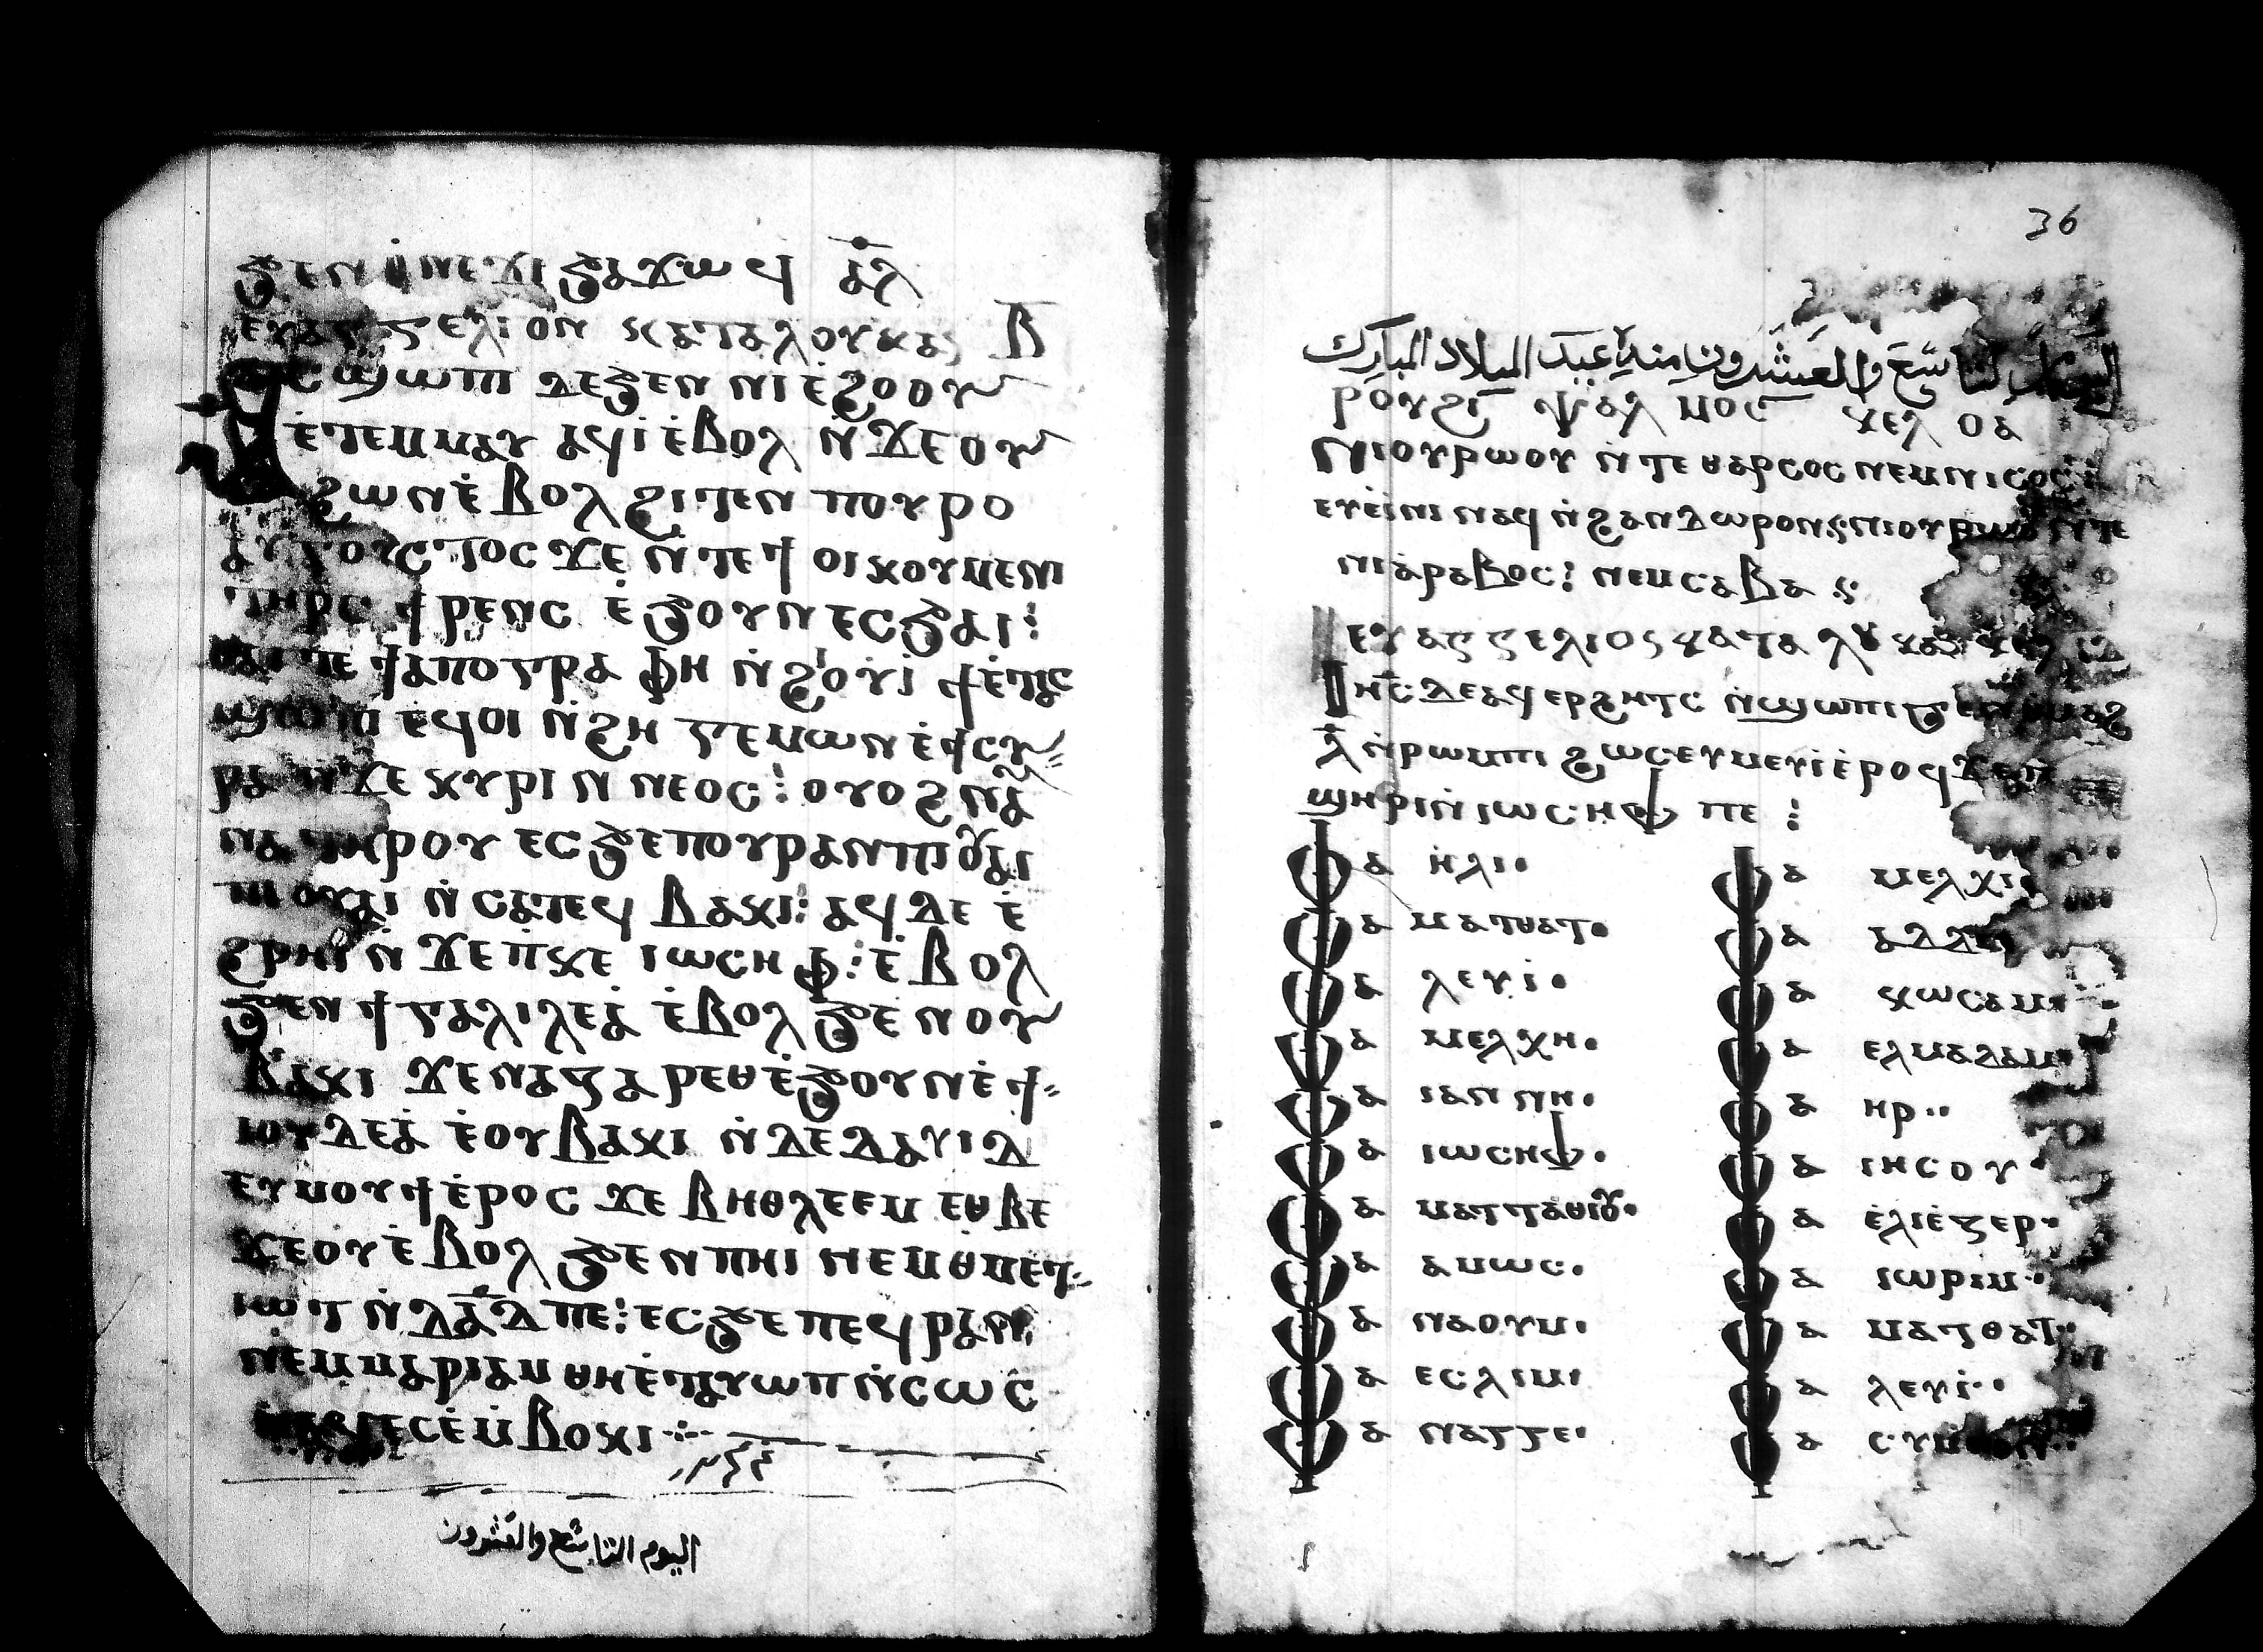 ϧⲉⲛ ⲛⲉϫⲓϧⲁϫⲱϥ ⲁ̅ⲗ
ⲉⲩⲁⲅⲅⲉⲗⲓⲟⲛ ⲕⲁⲧⲁⲗⲟⲩⲕⲁⲥ ⲃ̅
ⲁⲥϣⲱⲡⲓ ⲇⲉϧⲉⲛ ⲛⲓⲉ̀ϩⲟⲟⲩ
ⲉ̀ⲧⲉⲙⲙⲁⲩ ⲁϥⲓⲉ̀ⲃⲟⲗ ⲛ̀ϫⲉⲟⲩ
ϩⲱⲛⲉ̀ⲃⲟⲗ ϩⲓⲧⲉⲛ ⲡⲟⲩⲣⲟ
ⲁⲩⲅⲟⲩⲥⲧⲟⲥ ϫⲉ ⲛ̀ⲧⲉϯ ⲟⲓⲕⲟⲩⲙⲉⲛⲓ
ⲧⲏⲣⲥ ϯⲣⲉⲛⲥ ⲉ̀ϧⲟⲩⲛⲉⲥϧⲁⲓ:
ⲑⲁⲓ ⲧⲉ ϯⲁⲡⲟⲅⲣⲁⲫⲏ ⲛ̀ϩⲟⲩⲓ̀ ϯⲉ̀ⲧⲁⲥ
ϣⲱⲡⲓ ⲉϥⲟⲓ ⲛ̀ϩⲏ ⲅⲉⲙⲱⲛ ⲉ̀ϯⲥⲩ
ⲣⲓⲁ ⲛ̀ϫⲉ ⲕⲩⲣⲓⲛⲛⲉⲟⲥ: ⲟⲩⲟϩ ⲛⲁⲩ
ⲛⲁ ⲧⲏⲣⲟⲩ ⲉⲥϧⲉⲡⲟⲩⲣⲁⲛⲡⲓⲟⲩⲁⲓ
ⲡⲓⲟⲩⲁⲓ ⲛ̀ⲥⲁⲧⲉϥ ⲃⲁⲕⲓ: ⲁϥⲇⲉ ⲉ̀
ϩⲣⲏⲓ ⲛ̀ϫⲉⲡⲕⲉ ⲓⲱⲥⲏⲫ: ⲉ̀ⲃⲟⲗ
ϧⲉⲛ ϯⲅⲁⲗⲓⲗⲉⲁ̀ ⲉ̀ⲃⲟⲗϧⲉⲛⲟⲩ
ⲃⲁⲕⲓ ϫⲉⲛⲁⲍⲁⲣⲉⲑ ⲉ̀ϧⲟⲩⲛⲉ̀ϯ
ⲓⲟⲩⲇⲉⲁ̀ ⲉ̀ⲟⲩⲃⲁⲕⲓ ⲛ̀ⲇⲉⲇⲁⲩⲓⲇ
ⲉⲩⲙⲟⲩϯⲉ̀ⲣⲟⲥ ϫⲉ ⲃⲏⲑⲗⲉⲉⲙ ⲉⲑⲃⲉ
ϫⲉⲟⲩⲉ̀ⲃⲟⲗ ϧⲉⲛ ⲡⲏⲓ ⲛⲉⲙ ⲑⲙⲉⲧ
ⲓⲱⲧ ⲛ̀ⲇⲁ̅ⲇ ⲡⲉ: ⲉⲥϧⲉ ⲡⲉϥⲣⲁⲛ
ⲛⲉⲙⲙⲁⲣⲓⲁⲙ ⲑⲏⲉ̀ⲧⲁⲩⲱⲡ ⲛ̀ⲥⲱⲥ
ⲛⲁϥ ⲉⲥⲉ̀ⲙⲃⲟⲕⲓ
اليوم التاسع والعشرون
36
اليوم التاسع والعشرون منه عيد الميلاد المبارك
ⲣⲟⲩϩⲓ̅ ⲯⲁⲗⲙⲟⲥ̅ ⲕⲉⲗ ⲟⲁ
ⲛⲓⲟⲩⲣⲱⲟⲩ ⲛ̀ⲧⲉ ⲑⲁⲣⲥⲟⲥ ⲛⲉⲙⲛⲓⲥⲟⲥ
ⲉⲩⲉ̀ⲓⲛⲓ ⲛⲁϥ ⲛ̀ϩⲁⲛⲇⲱⲣⲟⲛ: ⲛⲓⲟⲩⲣⲱⲟⲩ ⲛ̀ⲧⲉ
ⲛⲓⲁ̀ⲣⲁⲃⲟⲥ: ⲛⲉⲙⲥⲁⲃⲁ :
ⲉⲩⲁⲅⲅⲉⲗⲓⲟⲥ ⲕⲁⲧⲁ ⲗⲩⲕⲁⲥ ⲕⲉⲗ
ⲓⲏ̅ⲥ ⲇⲉⲁϥⲉⲣϩⲏⲧⲥ ⲛ̀ϣⲱⲡⲓ ϧⲉⲛ ⲙⲁϩ
ⲗ̅ ⲛ̀ⲣⲟⲙⲡⲓ ϩⲱⲥⲉⲩⲙⲉⲩⲓ̀ⲉ̀ⲣⲟϥ ϫⲉⲡ
ϣⲏⲣⲓⲛ̀ⲓⲱⲥⲏⲫ ⲡⲉ :
ⲫⲁ ⲏ̀ⲗⲓ· ⲫⲁ ⲙⲉⲗⲭⲓ·
ⲫⲁ ⲙⲁⲧⲑⲁⲧ· ⲫⲁ ⲁⲇⲇⲓ
ⲫⲁ ⲗⲉⲩⲓ̀· ⲫⲁ ⲕⲱⲥⲁⲙ·
ⲫⲁ ⲙⲉⲗⲭⲏ· ⲫⲁ ⲉⲗⲙⲁⲇⲁⲙ·
ⲫⲁ ⲓⲁⲛⲛⲏ· ⲫⲁ ⲏⲣ··
ⲫⲁ ⲓⲱⲥⲏⲫ· ⲫⲁ ⲓⲏⲥⲟⲩ·
ⲫⲁ ⲙⲁⲧⲧⲁⲑⲓⲟⲩ· ⲫⲁ ⲉ̀ⲗⲓⲉ̀ⲍⲉⲣ·
ⲫⲁ ⲁⲙⲱⲥ· ⲫⲁ ⲓⲱⲣⲓⲙ·
ⲫⲁ ⲛⲁⲟⲩⲙ· ⲫⲁ ⲙⲁⲧⲑⲁⲧ·
ⲫⲁ ⲉⲥⲗⲓⲙⲓ ⲫⲁ ⲗⲉⲩⲓ̀·
ⲫⲁ ⲛⲁⲅⲅⲉ· ⲫⲁ ⲥⲩⲙⲉⲱⲛ··